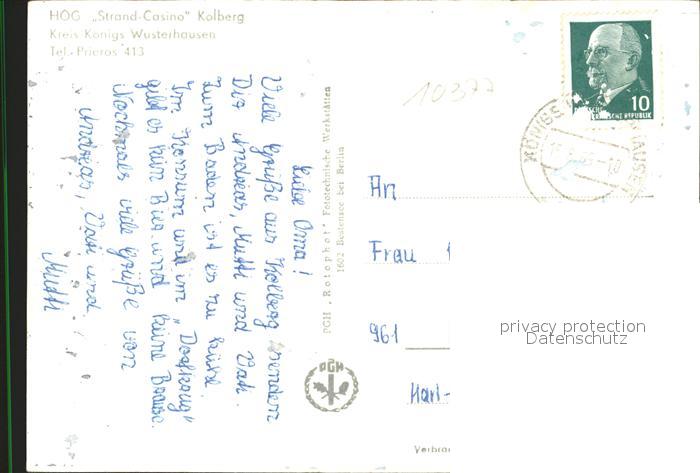 HOG „Strand-Casino" Kolberg
Kreis Königs Wusterhausen
Tel. Prieros 413
Liebe Oma!
Viele Grüße aus Kolberg senden
Dir Andreas, Mutti und Vati.
Zum Baden ist es zu kühl.
Im Konsum und im „Dorfkrug"
gibt es kein Bier und keine Brause.
Nochmals viele Grüße von
Andreas, Vati und
Mutti
PGH „Rotophot" Fototechnische Werkstätten
1602 Bestensee bei Berlin
PGH
10377
10
DEUTSCHE
DEMOKRATISCHE REPUBLIK
KÖNIGS
HAUSEN
An
Frau
961
Karl-
Verbrau
privacy protection
Datenschutz